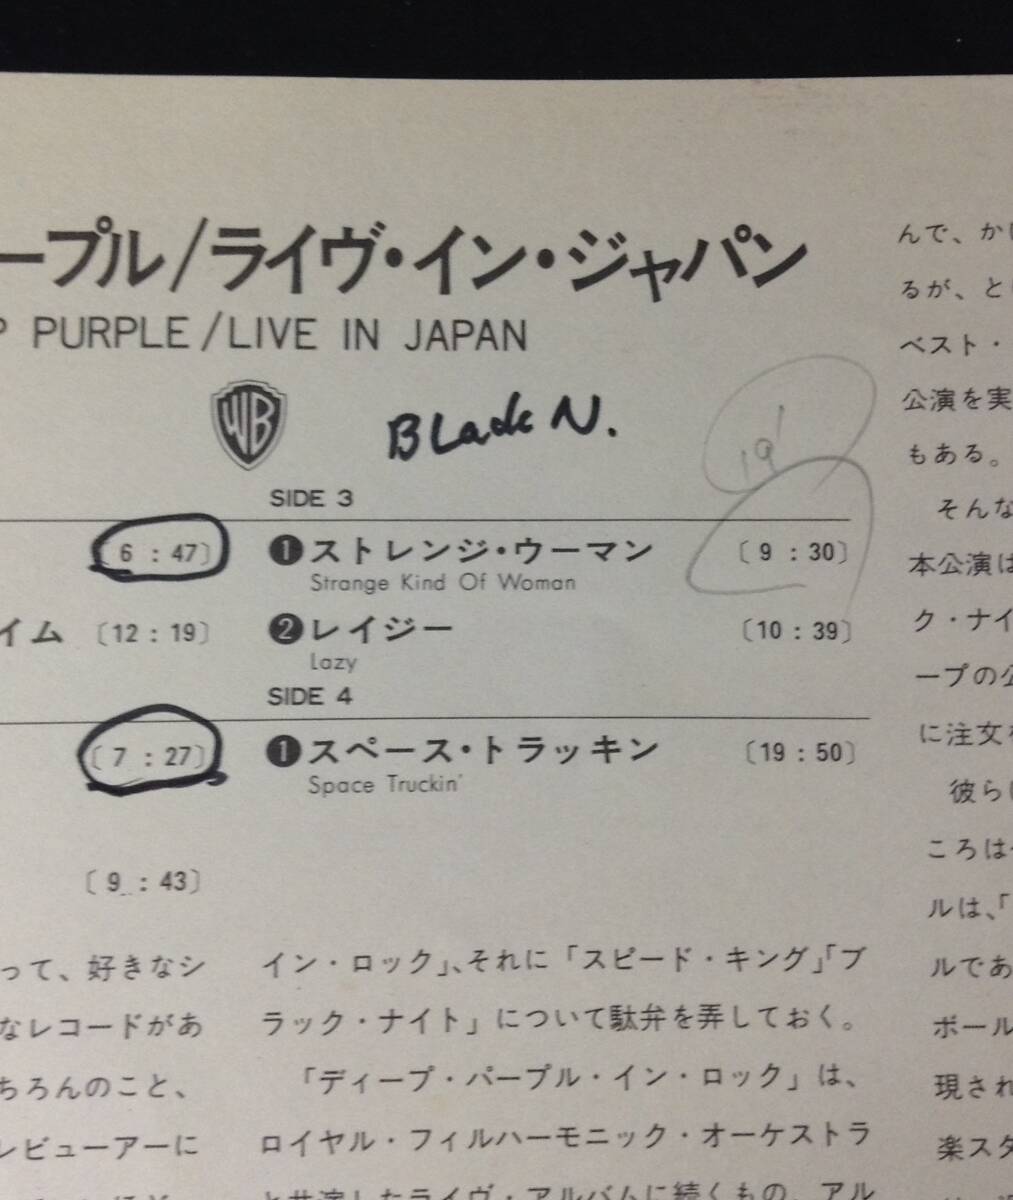 ープル/ライヴ・イン・ジャパン
PURPLE/LIVE IN JAPAN
WB
Black N.
19'
SIDE 3
〔6:47〕 ❶ストレンジ・ウーマン 〔9:30〕
Strange Kind Of Woman
イム 〔12:19〕 ❷レイジー 〔10:39〕
Lazy
SIDE 4
〔7:27〕 ❶スペース・トラッキン 〔19:50〕
Space Truckin'
〔9:43〕
って、好きなシ
なレコードがあ
ちろんのこと、
レビューアーに
イン・ロック」、それに「スピード・キング」「ブ
ラック・ナイト」について駄弁を弄しておく。
「ディープ・パープル・イン・ロック」は、
ロイヤル・フィルハーモニック・オーケストラ
と共演したライヴ・アルバムに続くもの、アル
んで、か
るが、と
ベスト・
公演を実
もある。
そんな
本公演は
ク・ナイ
ープの公
に注文
彼ら
ころは
ルは、「
ルであ
ボール
現され
楽スタ